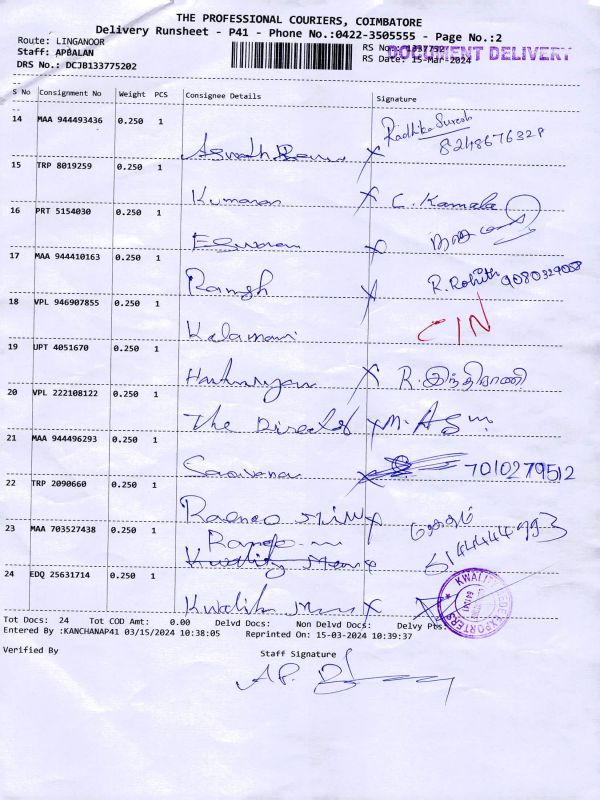 THE PROFESSIONAL COURIERS, COIMBATORE
Delivery Runsheet - P41 - Phone No.:0422-3505555 - Page No.:2
Route: LINGANOOR
RS No.: 1337752
DOCUMENT DELIVERY
Staff: APBALAN
RS Date: 15-Mar-2024
DRS No.: DCJB133775202
S No Consignment No Weight PCS Consignee Details Signature
14 MAA 944493436 0.250 1 Radhika Suresh
15 TRP 8019259 0.250 1
Kumaran X C. Kamala
16 PRT 5154030 0.250 1
Eswaran X
17 MAA 944410163 0.250 1
Ramesh X R. Rohith 9080329008
18 VPL 946907855 0.250 1
Kalamani
19 UPT 4051670 0.250 1
X R. இந்திராணி
20 VPL 222108122 0.250 1
The Director X
21 MAA 944496293 0.250 1
Saravanan X 7010279512
22 TRP 2090660 0.250 1
X
23 MAA 703527438 0.250 1
24 EDQ 25631714 0.250 1
X
KWALITY EXPORTERS
Tot Docs: 24 Tot COD Amt: 0.00 Delvd Docs: Non Delvd Docs: Delvy Pts:
Entered By :KANCHANAP41 03/15/2024 10:38:05 Reprinted On: 15-03-2024 10:39:37
Verified By Staff Signature